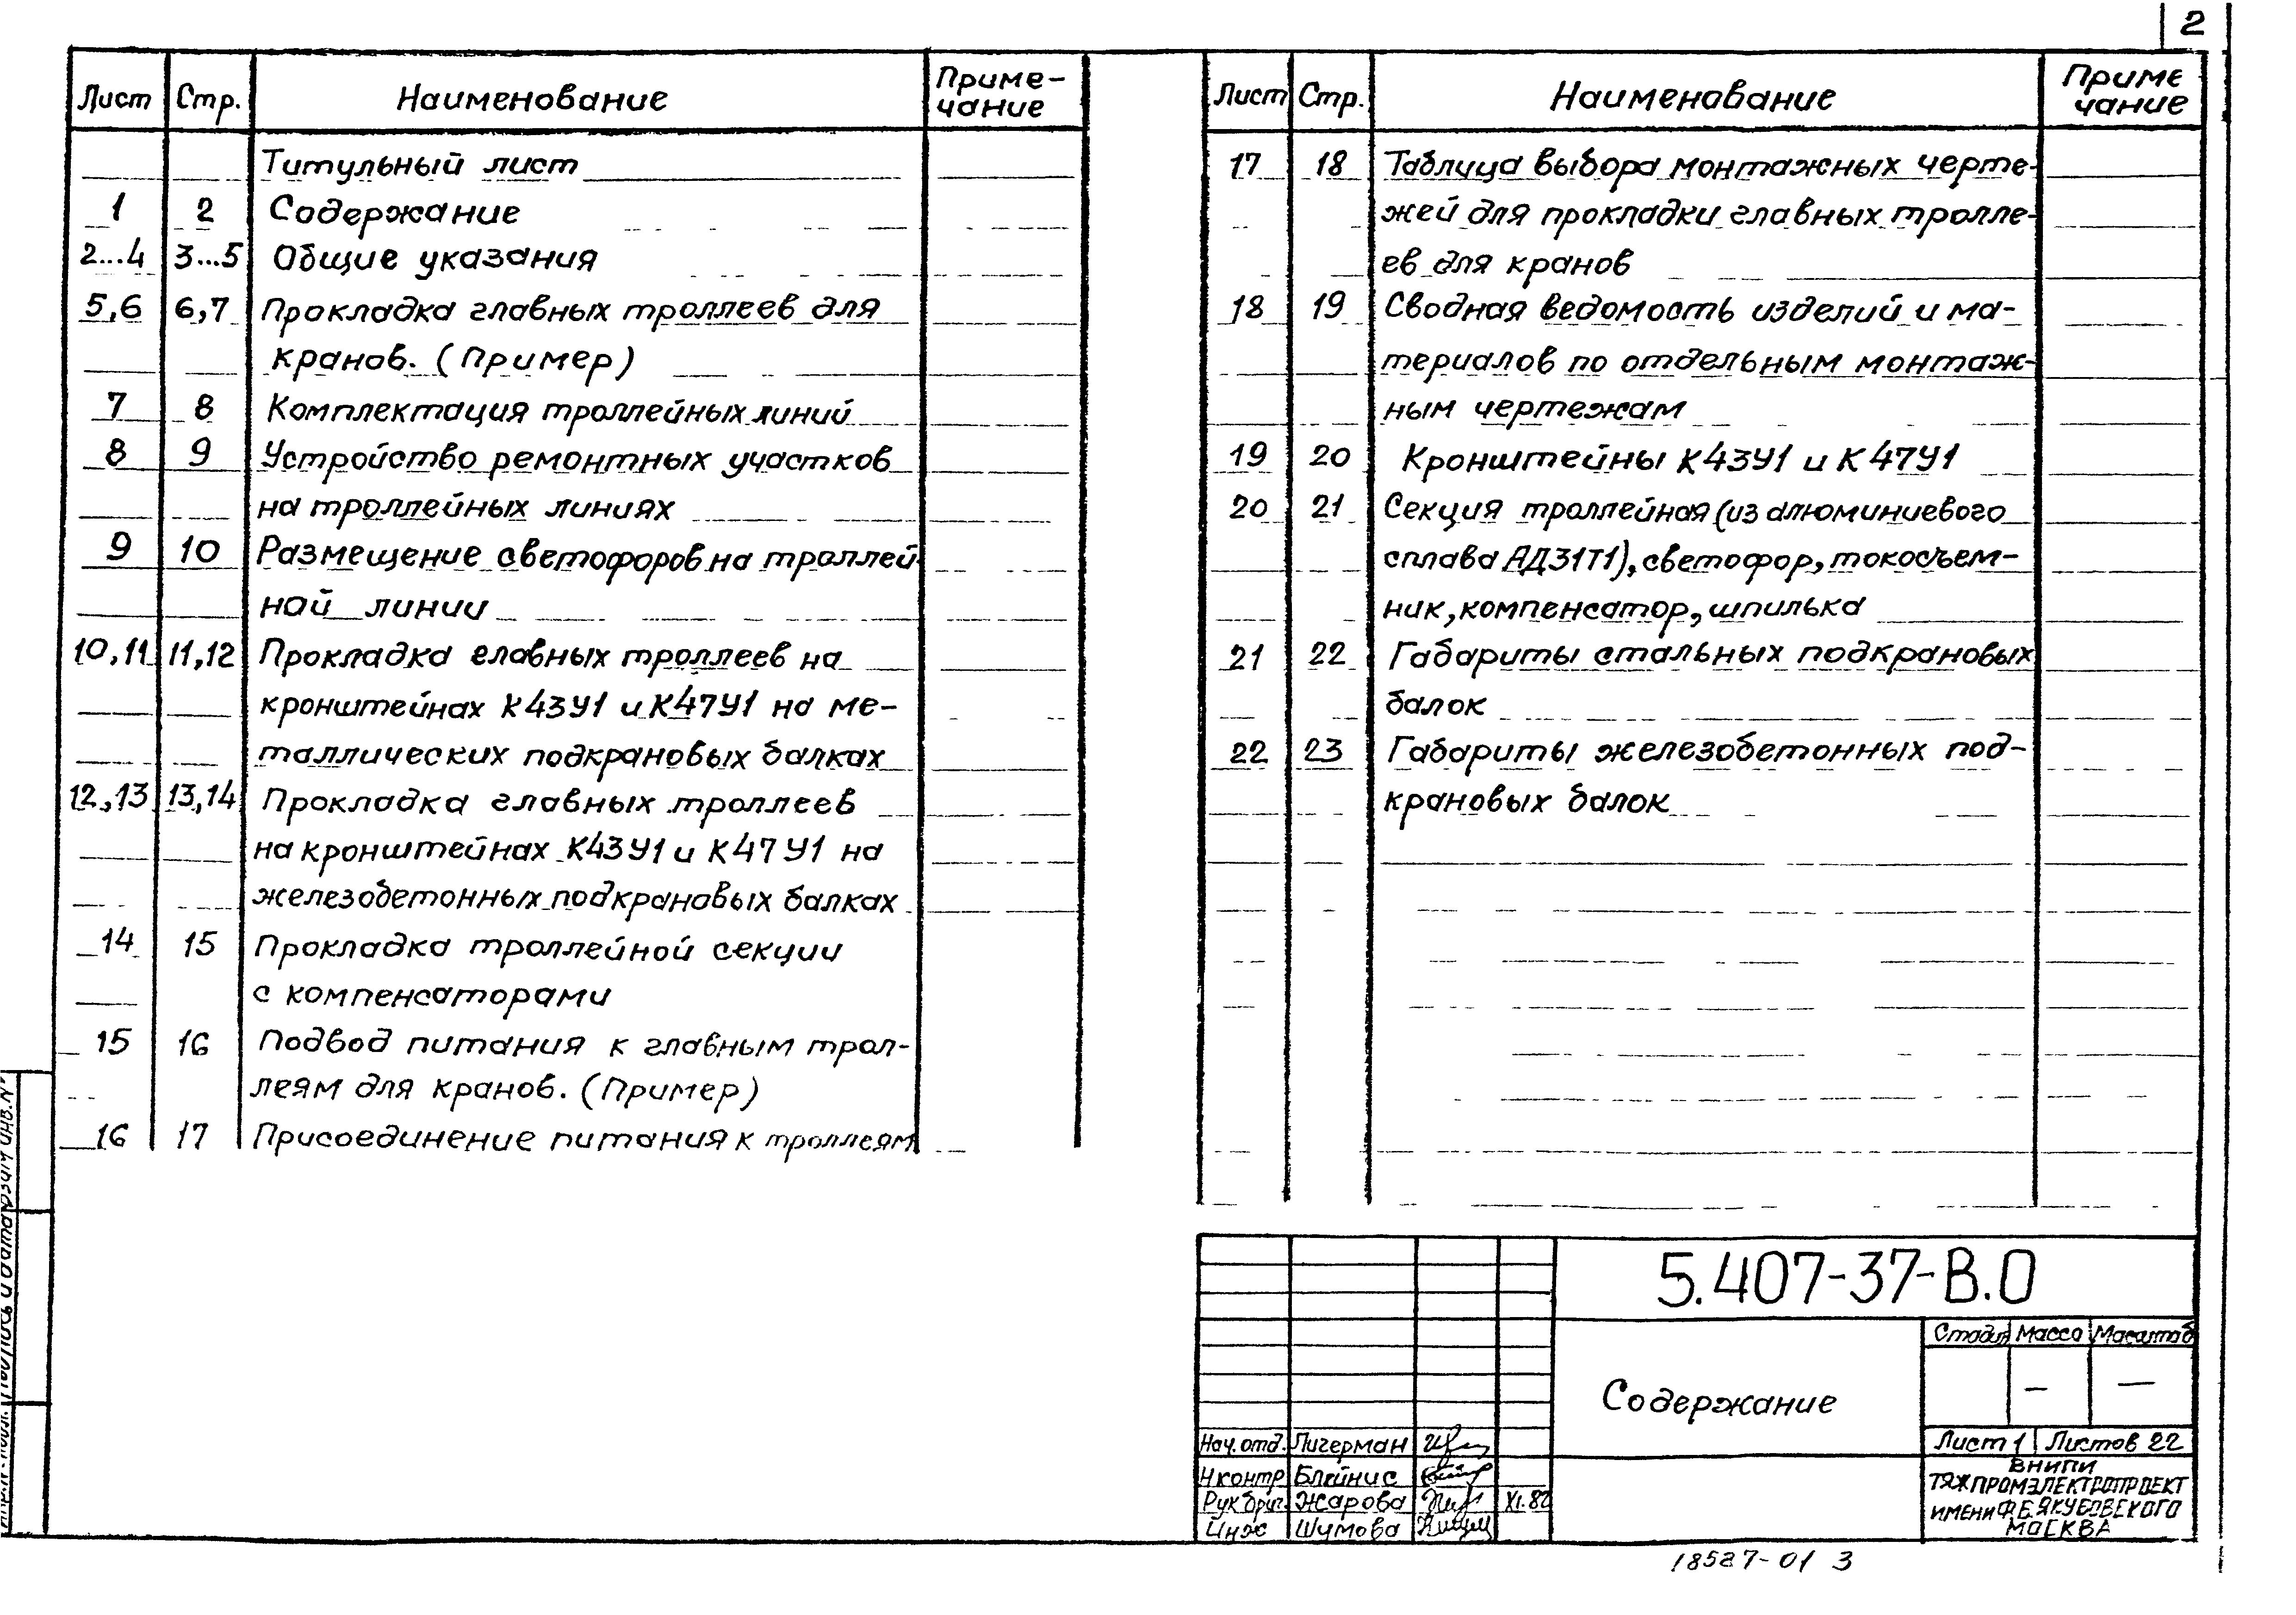 2
Лист Стр. Наименование Приме-
чание
Титульный лист
1 2 Содержание
2...4 3...5 Общие указания
5,6 6,7 Прокладка главных троллеев для
кранов. (Пример)
7 8 Комплектация троллейных линий
8 9 Устройство ремонтных участков
на троллейных линиях
9 10 Размещение светофоров на троллей-
ной линии
10,11 11,12 Прокладка главных троллеев на
кронштейнах К43У1 и К47У1 на ме-
таллических подкрановых балках
12,13 13,14 Прокладка главных троллеев
на кронштейнах К43У1 и К47У1 на
железобетонных подкрановых балках
14 15 Прокладка троллейной секции
с компенсаторами
15 16 Подвод питания к главным трол-
леям для кранов. (Пример)
16 17 Присоединение питания к троллеям
Лист Стр. Наименование Приме
чание
17 18 Таблица выбора монтажных черте-
жей для прокладки главных тролле-
ев для кранов
18 19 Сводная ведомость изделий и ма-
териалов по отдельным монтаж-
ным чертежам
19 20 Кронштейны К43У1 и К47У1
20 21 Секция троллейная (из алюминиевого
сплава АД31Т1), светофор, токосъем-
ник, компенсатор, шпилька
21 22 Габариты стальных подкрановых
балок
22 23 Габариты железобетонных под-
крановых балок
5.407-37-В.0
Содержание
Стадия Масса Масштаб
— —
Лист 1 Листов 22
Нач. отд. Лигерман
Н контр Блейнис
Рук бриг. Жарова XI.82
Инж Шумова
ВНИПИ
ТЯЖПРОМЭЛЕКТРОПРОЕКТ
ИМЕНИ Ф.Б. ЯКУБОВСКОГО
МОСКВА
18527-01 3